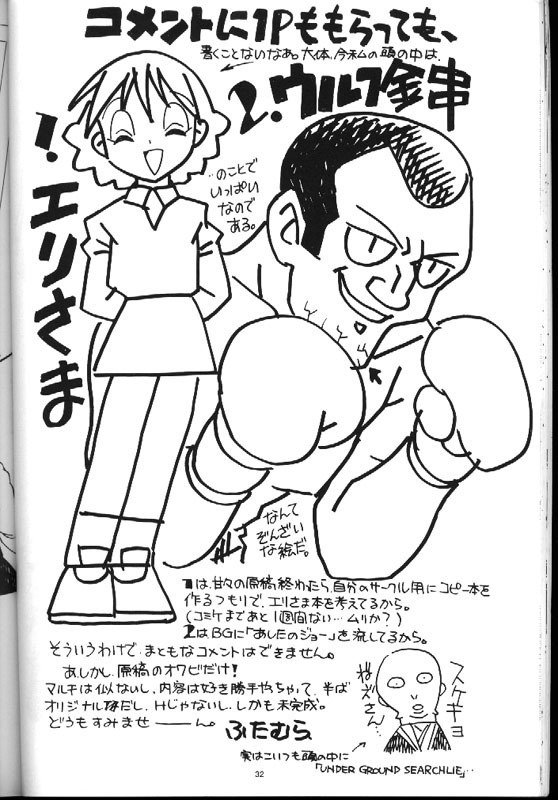 コメントに1Pももらっても、
書くことないなあ。大体、今私の頭の中は、
1.エリさま
2.ウルフ金串
…のことで
いっぱい
なので
ある。
なんて
ぞんざい
な絵だ。
1は、甘々の原稿終わったら、自分のサークル用にコピー本を
作るつもりで、エリさま本を考えてるから。
(コミケまであと1週間ない…ムリか?)
2はBGに「あしたのジョー」を流してるから。
そういうわけで、まともなコメントはできません。
あ、しかし、原稿のオワビだけ!
マルチは似ないし、内容は好き勝手やっちゃって、半ば
オリジナルだし、Hじゃないし、しかも未完成。
どうもすみませーーん。
ふたむら
スケキヨ
ねえさん…
実はこいつも頭の中に…
「UNDER GROUND SEARCHLIE」…
32